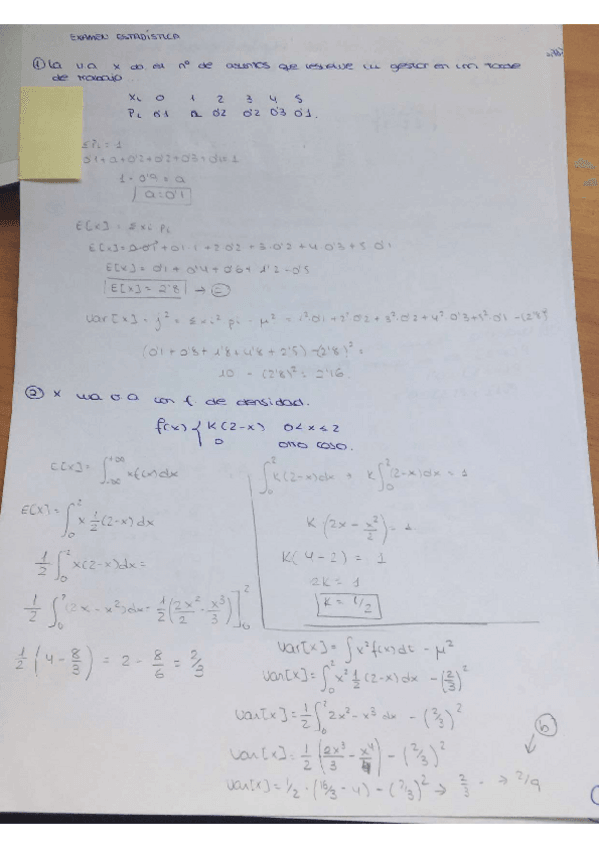 EXAMEN ESTADÍSTICA
① La v.a x da el nº de asuntos que resuelve un gestor en una tarde
de trabajo
Xi 0 1 2 3 4 5
Pi 0'1 a 0'2 0'2 0'3 0'1.
ΣPi = 1
0'1+a+0'2+0'2+0'3+0'1=1
1-0'9=a
a=0'1
E[x]= Σxi Pi
E[x]= 0·0'1+0'1·1+2·0'2+3·0'2+4·0'3+5·0'1
E[x]= 0'1+0'4+0'6+1'2+0'5
E[x]= 2'8 →
Var[x]= σ² = Σxi² pi - μ² = 1²·0'1+2²·0'2+3²·0'2+4²·0'3+5²·0'1-(2'8)²
(0'1+0'8+1'8+4'8+2'5)-(2'8)²=
10 - (2'8)² = 2'16
② x v.a con f de densidad.
f(x) { K(2-x) 0<x≤2
0 otro caso.
E[x]= ∫-∞+∞ xf(x)dx
E[x]= ∫₀² x 1/2 (2-x)dx
1/2 ∫₀² x(2-x)dx=
1/2 ∫₀² (2x-x²)dx= 1/2 (2x²/2 - x³/3)]₀²
1/2 (4-8/3) = 2 - 8/6 = 2/3
∫₀² K(2-x)dx + K∫₀² (2-x)dx=1
K (2x - x²/2)=1
K(4-2) = 1
2K=1
K=1/2
Var[x]= ∫x²f(x)dt - μ²
Var[x]= ∫₀² x² 1/2 (2-x)dx - (2/3)²
Var[x]= 1/2 ∫₀² 2x²-x³ dx - (2/3)²
b
Var[x]= 1/2 (2x³/3 - x⁴/4) - (2/3)²
Var[x]= 1/2 · (16/3 - 4) - (2/3)² → 2/3 - → 2/9